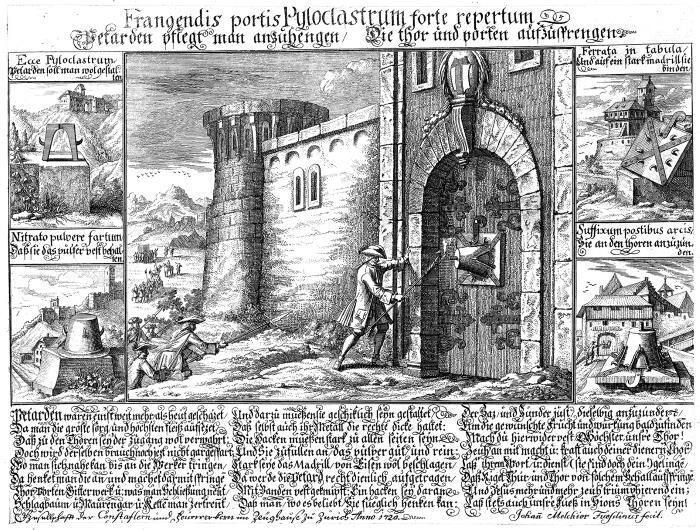 Frangendis portis Pyloclastrum forte repertum
Petarden pflegt man anzuhengen / Die thor und porten aufzusprengen
Ecce Pyloclastrum
Petarden soll man wol gestal-
ten
Ferrata in tabula,
Und auf ein stark madrill sie
binden.
Nitrato pulvere fartum
Daß sie das pulfer vest behal-
ten.
Suffixum postibus arcis,
Sie an den thoren anzuzün-
den.
Petarden waren einst weit mehr als heut geschäzet,
Da man die große sorg und höchsten fleiß aufsezet,
Daß zu den Thoren sey der zugang wol verwahrt;
Doch wird derselben brauch noch jezt nicht gar gespart:
So man sich nahe kan bis an die Werker tringen,
Da henket man die an und machet darmit springe
Thor Porten Gitterwerk u: was man Schließung nent,
Schlagbäum u: Maurengar u: Kette man zertrent.
Und darzu müeßen sie geschiklich seyn gestaltet,
Daß selbst auch ihr Metall die rechte dicke haltet:
Die Backen müeßen stark zu allen seiten seyn:
Und Sie zu füllen an, das pulver gut und rein:
Stark seye das Madrill, von Eisen wol beschlagen
Da werde die Petard recht ordenlich aufgetragen
Mit banden vest geknüpft: Ein hacken sey daran
Daß man, wo es beliebt, Sie füeglich henken kan:
Der Saz, und Zünder just, dieselbig anzuzünden,
Um die gewünschte Frucht und würkung bald zufinden
Mach du hier wider vest O Höchster, unsre Thor!
Zeuh an mit macht u: kraft auch deiner dienern Ohr!
Laß ihrem Port u: dienst / sie sind doch dein Ingesinde
Und Jesus mehr und mehr zeuh triumphierend ein:
Laß stets auch unsre dieß in Sions Thoren seyn!
Gesellschaft der Constaflern und Feuerwerkern im Zeughauß zu Zürich Anno 1720.
Johan Melchior Füeßlinus fecit.